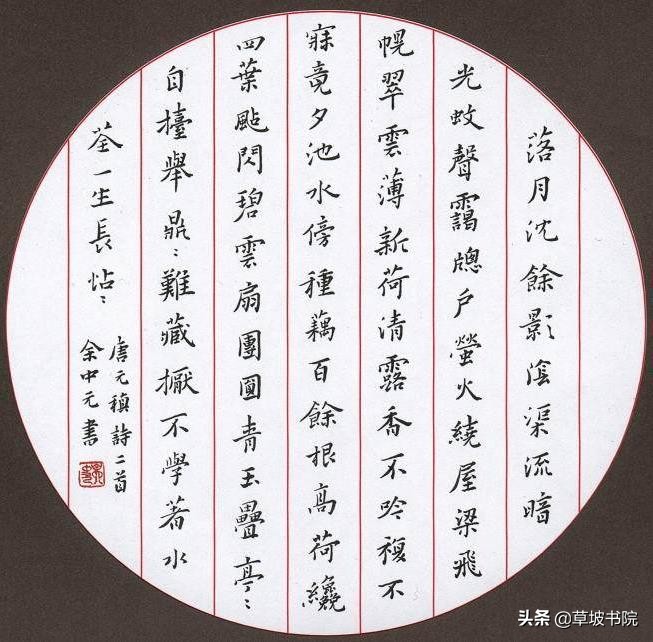 落月沈餘影陰渠流暗
光蚊聲靄牕戶螢火繞屋梁飛
幌翠雲薄新荷清露香不吟複不
寐竟夕池水傍種藕百餘根高荷纔
四葉颭閃碧雲扇團圓青玉疊亭〻
自檯舉鼎〻難藏擫不學著水
荃一生長怗〻
唐元稹詩二首
余中元書
头条 @草坡书院